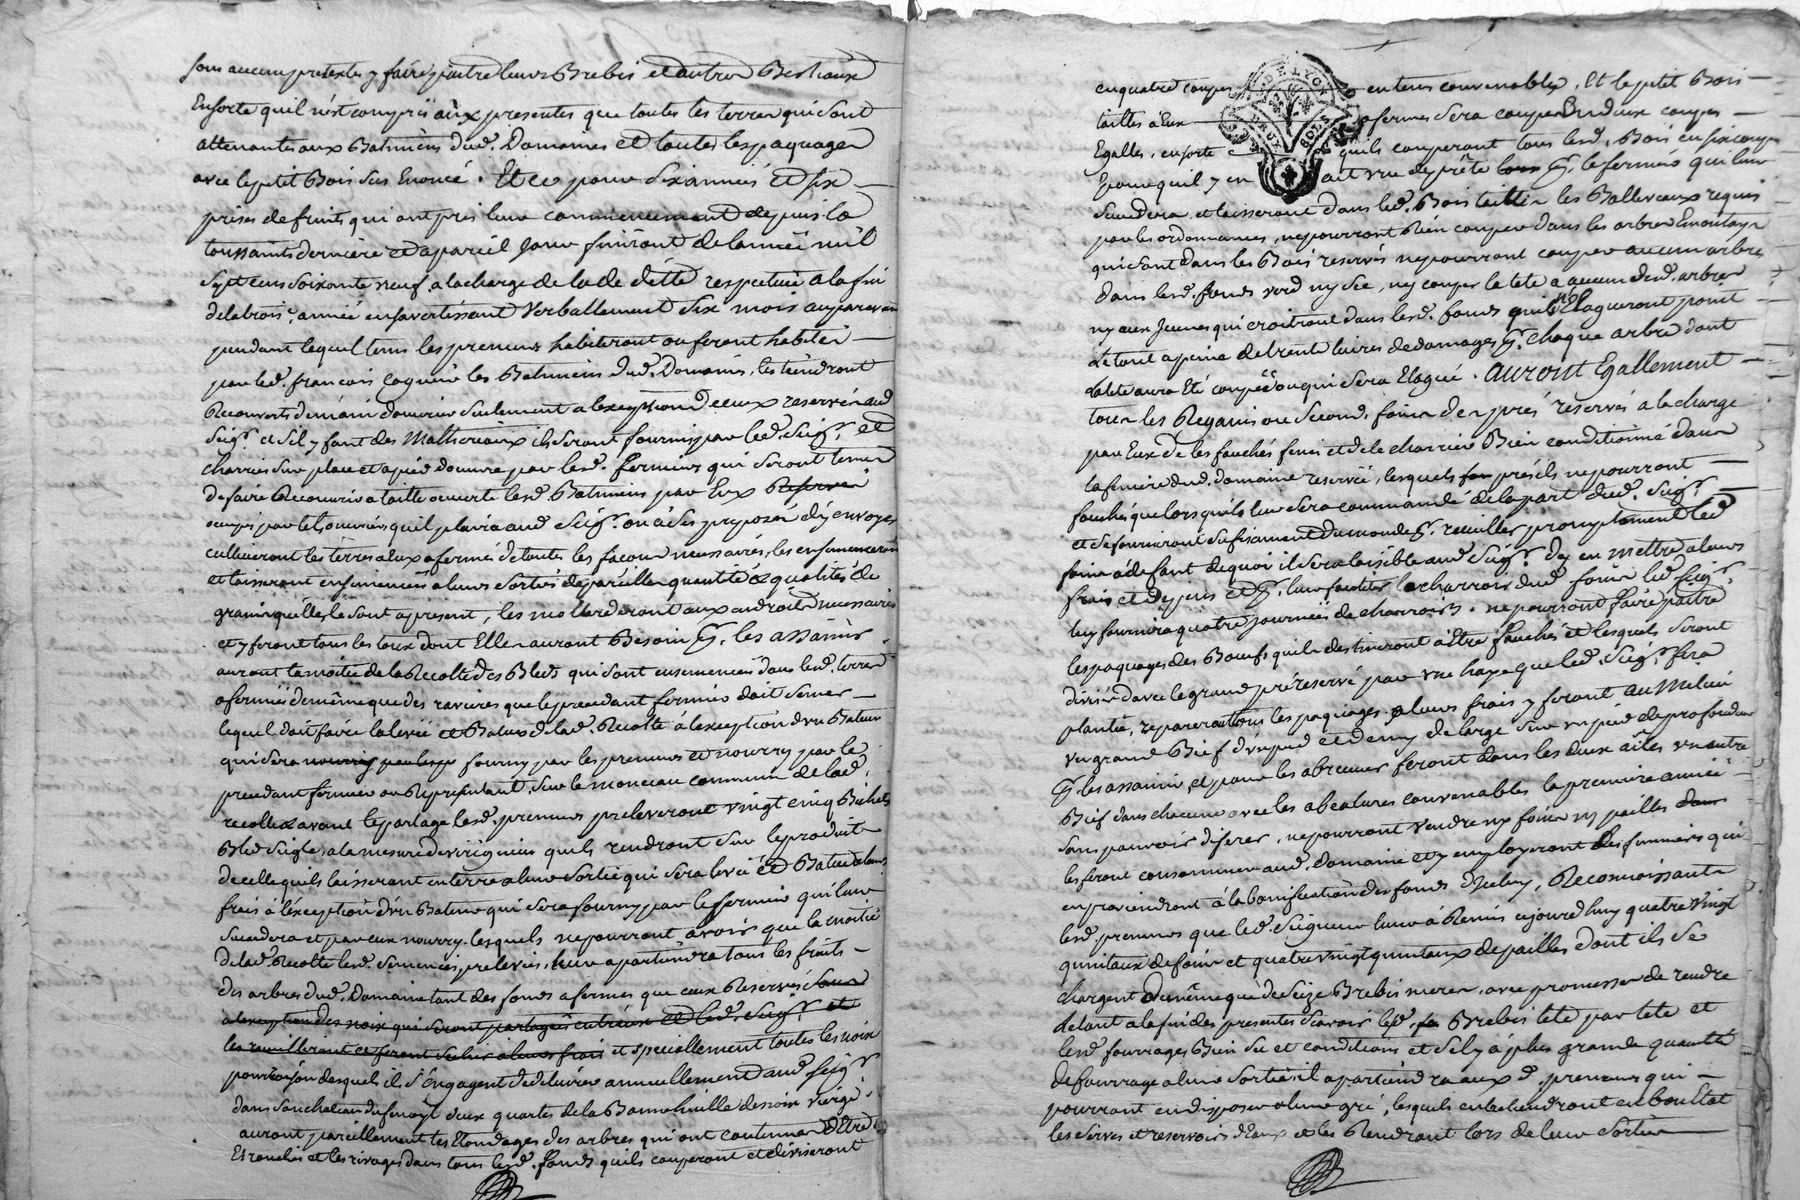 sous aucun pretexte y faire paitre leurs Brebis et autres Bestiaux
Ensorte quil n'est compris aux presentes que toutes les terres qui sont
attenantes aux Batimens dud. Domaines et toutes les paquages
avec le petit Bois sus Enoncé. Et ce pour six années et six
prises de fruits qui ont pris leur commencement depuis la
toussaints derniere et a pareil jour finiront de l'année mil
sept cens soixante neuf a la charge de la de ditte respective a la fin
de la trois.e année en savertissant Verballement six mois auparavant
pendant lequel tems les preneurs habiteront ou feront habiter
par led. françois les Batimens dud. Domaine, les tiendront
Recouverts de main douvrier seulement a lexeption de ceux reservés aud
Seigr. et sil y faut des Matheriaux ils seront fournis par led. Seigr. et
charriés sur place et a pied doeuvre par lesd. fermiers qui seront tenus
de faire Recouvrir a taille ouverte lesd. Batimens par Eux Reservés
occupés par tels ouvriers quil plaira aud Seigr. ou à ses preposés d'y envoyer
cultiveront les terres a eux afermé de toutes les façons necessaires, les ensemenceront
et laisseront ensemencées a leurs sorties de pareilles quantité et qualités de
grains quelles le sont a present, les aux endroits necessaires
et y feront tous les dont Elles auront Besoin pr. les assainir
auront la moitié de la Recolte des Bleds qui sont ensemencés dans lesd. terres
afermées de même que des ravieres que le precedant fermier doit semer
lequel doit faire la levée et Batue de lad. Recolte à lexception d'un Bateur
qui sera fourny par les preneurs et nourry par le
precedant fermier ou Representant, sur le monceau commun de lad.
recolte et avant le partage lesd. preneurs preleveront vingt cinq Bichets
Bled seigle, a la mesure de quils rendront sur le produit
de celle quils laisseront en terre a leur sortie qui sera levée et Batue a leurs
frais à l'exception d'un Bateur qui sera fourny par le fermier qui leur
succedera et par eux nourry. lesquels ne pourront avoir que la moitié
de lad. Recolte lesd. semences prelevées, leur apartiendra tous les fruits
des arbres dud. Domaine tant des fonds afermés que ceux Reservés sous
a lexeption des noix qui seront partagées entr'eux et led. Seigr. et
les ce feront a leurs frais et speciallement toutes les noix
pour raison desquels il s'engagent de delivrer annuellement aud Seigr.
dans son chateau du deux quartes de la Bonne huille de noix vierge.
auront pareillement les Elondages des arbres qui ont coutume d'Etre
Etronchés et les rivages dans tous lesd. fonds quils couperont et diviseront
en quatre coupes en tems convenables, Et le petit Bois
taillis à Eux afermé sera coupé En deux coupes
Egalles, ensorte quils couperont tous lesd. Bois en six coupes
pour quil y en ait une de prête pr. le fermier qui leur
succedera et laisseront dans led. Bois taillis les Balliveaux requis
par les ordonnances, ne pourront Rien couper dans les arbres
qui sont dans les Bois reservés ne pourront couper aucun arbre
dans lesd. fonds verd ny sec, ny couper la tete a aucun desd. arbres
ny aux Jeunes qui croitront dans lesd. fonds quils n'Elagueront point
Le tout a peine de trente livres de domages pr. chaque arbre dont
la tete aura Eté coupée ou qui sera Elagué. auront Egallement
tous les Regains ou second foins des prés reservés a la charge
par Eux de les fauchés fener et de le charrier Bien conditionné dans
la feniere dud. domaine reservée, lesquels prés ils ne pourront
fauché que lors quils leur sera commandé de la part dud. Seigr.
et se fourniront sufisament du monde pr. recuillir promptement led
foin à defaut de quoi il sera loisible aud Seigr. d'y en mettre a leurs
frais et depens et pr. leur faciliter le charrois dud foin led Seigr.
leur fournira quatre journées de charrois. ne pourront faire paitre
les paquages des Boeufs quils destineront à être fauchés et lesquels seront
divisés davec le grand pré reservé par une haye que led. Seigr. fera
plantée, repareront tous les paquages a leurs frais y feront au milieu
un grand Bief d'un pied et demy de large sur un pied de profondeur
pr. les assainir, et pour les abreuver feront dans les deux aîles un autre
Bief dans chacune avec les convenables la premiere année
sans pouvoir diferer, ne pourront vendre ny foins ny pailles
les feront consommer aud. domaine et y employeront les fumiers qui
en proviendront à la bonification des fonds d'icelluy, Reconnoissant
lesd. preneurs que led. Seigneur leur à Remis cejourdhuy quatre vingt
quintaux de foin et quatre vingt quintaux de pailles dont ils se
chargent de même que de seize Brebis meres, avec promesses de rendre
le tout a la fin des presentes scavoir lesd. Brebis tete par tete et
lesd. fourrages Bien sec et conditionés et sil y à plus grande quantité
de fourrage a leur sortie il apartiendra aux d. preneurs qui
pourront en disposer a leur gré, lesquels entretiendront en bon Etat
les serves et reservoirs d'Eaux et les Rendront lors de leur sortie